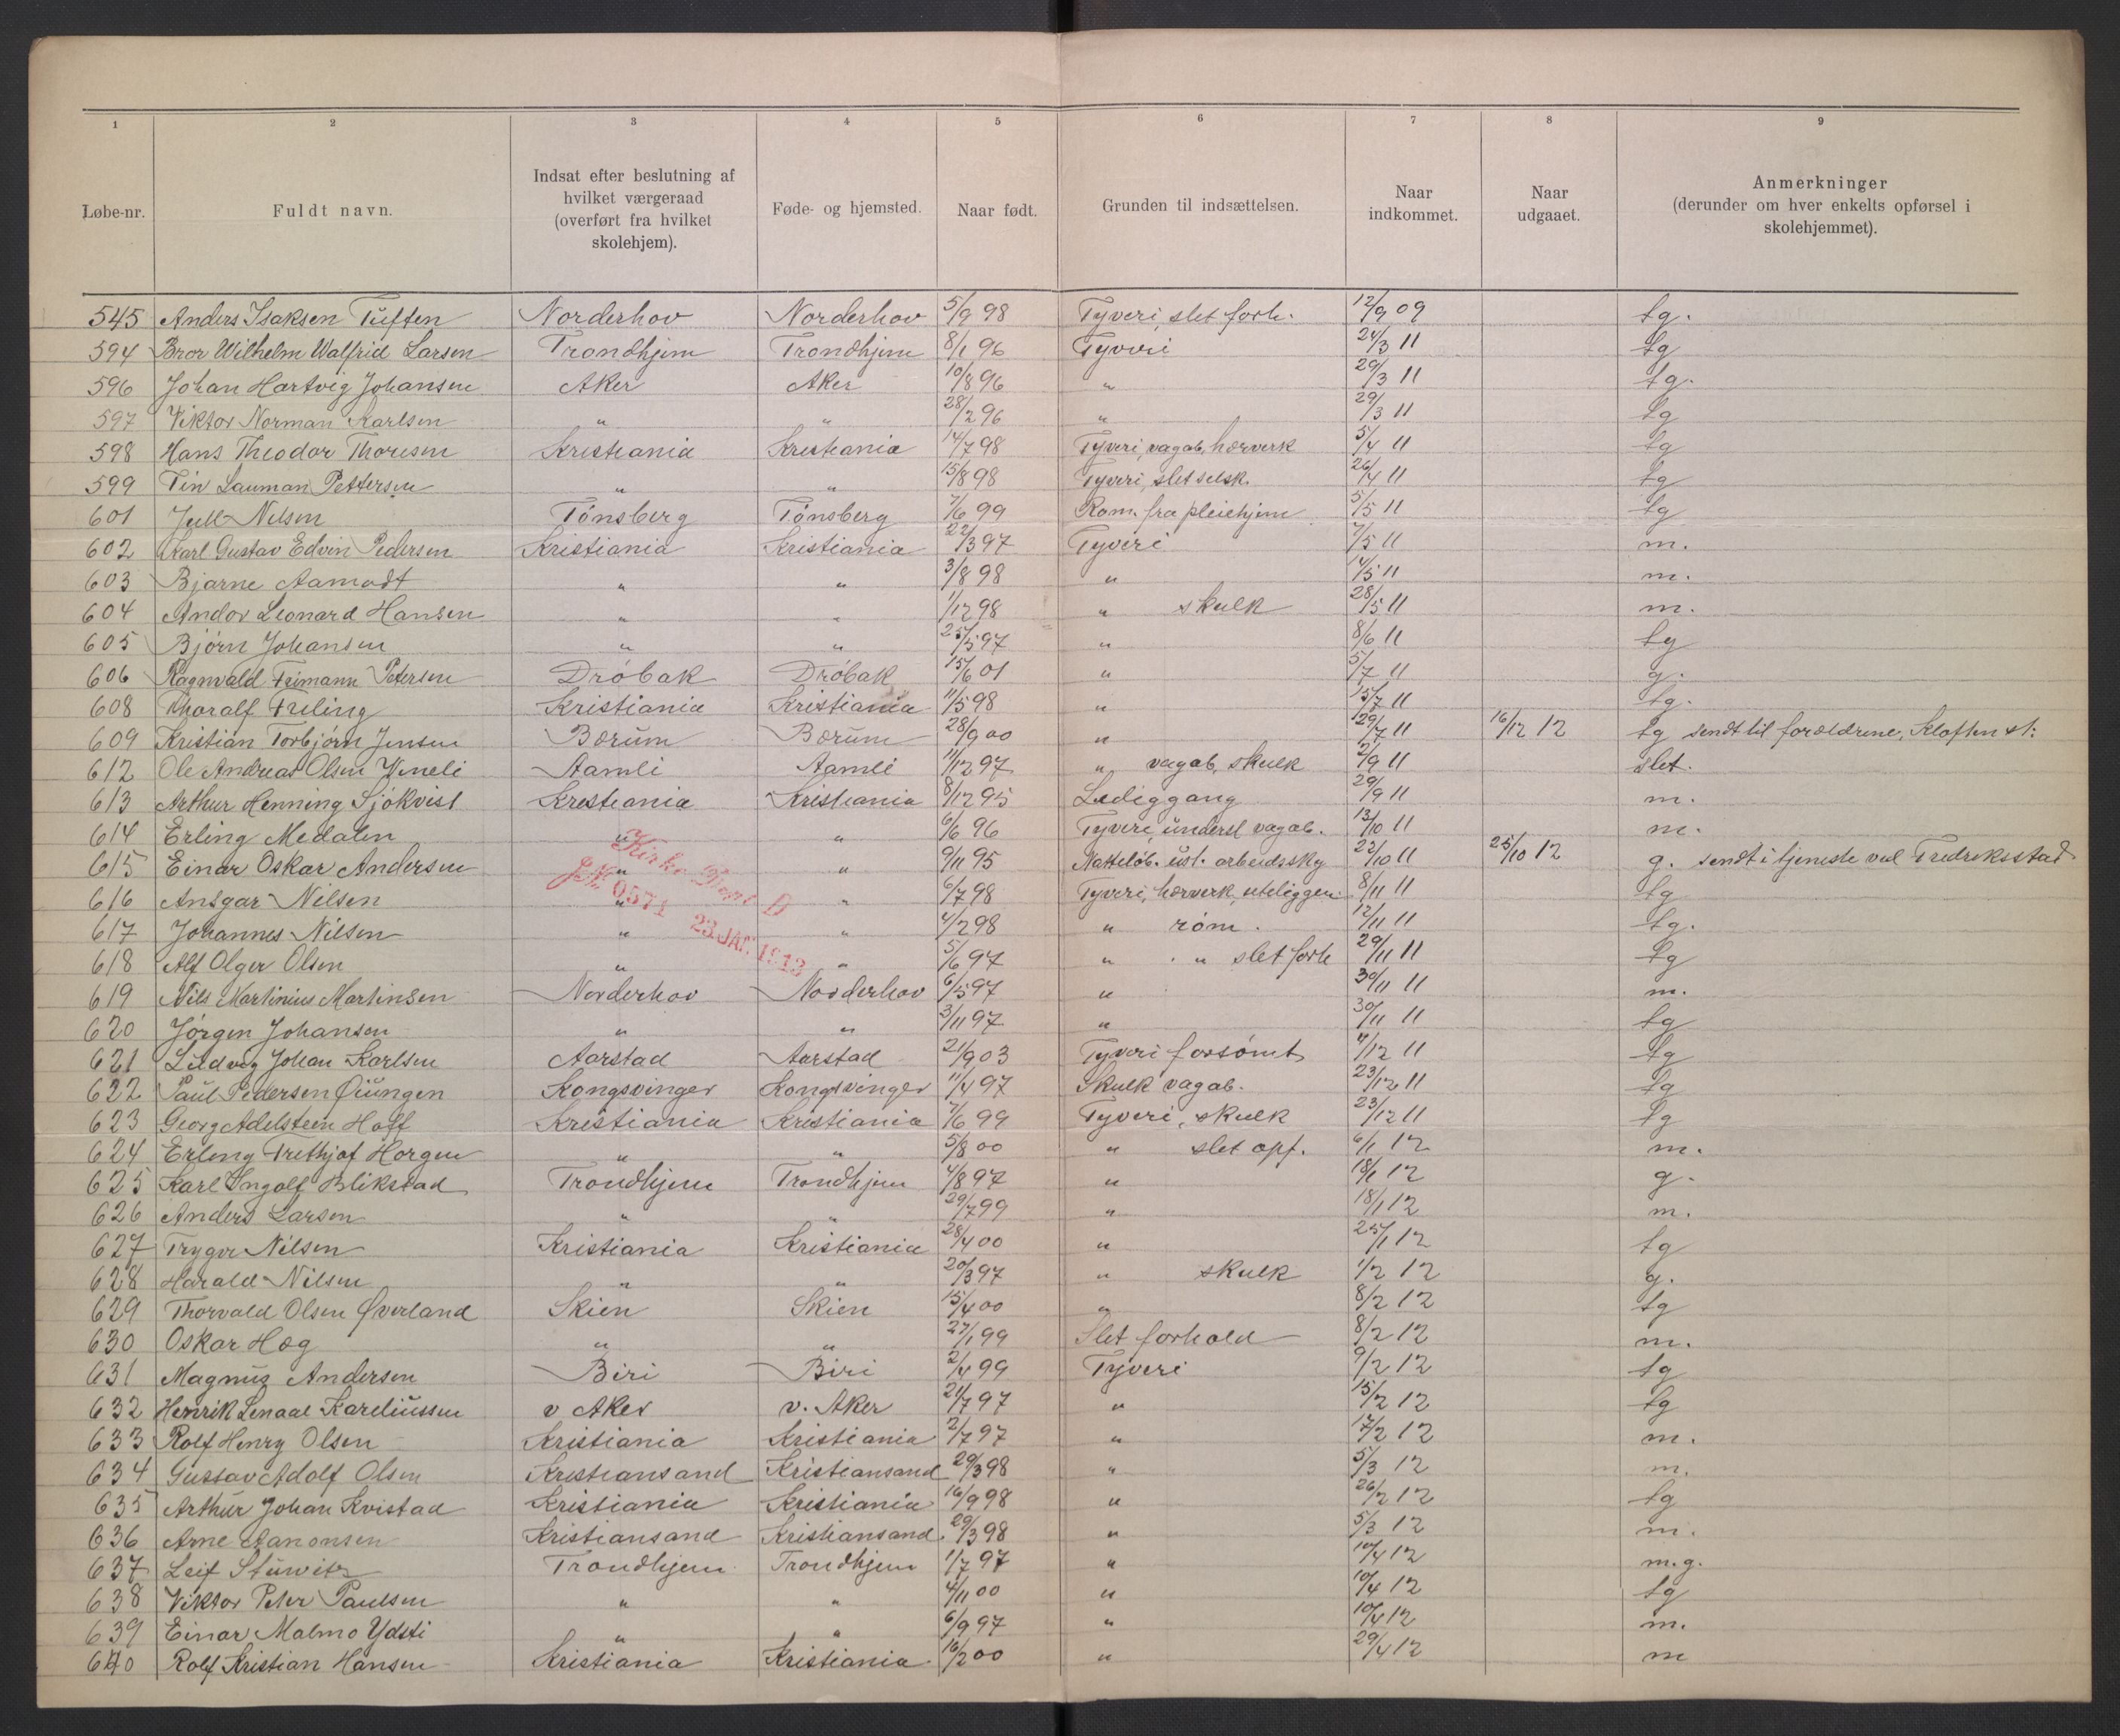 1 2 3 4 5 6 7 8 9
Løbe-nr. Fuldt navn. Indsat efter beslutning af hvilket værgeraad (overført fra hvilket skolehjem). Føde- og hjemsted. Naar født. Grunden til indsættelsen. Naar indkommet. Naar udgaaet. Anmerkninger (derunder om hver enkelts opførsel i skolehjemmet).
545 Anders Isaksen Tuften Norderhov Norderhov 5/9 98 Tyveri, slet forh. 12/9 09 tg.
594 Bror Wilhelm Walfrid Larsen Trondhjem Trondhjem 8/1 96 Tyveri 24/3 11 tg
596 Johan Hartvig Johansen Aker Aker 10/8 96 " 29/3 11 tg.
597 Viktor Norman Karlsen " " 28/2 96 " 29/3 11 tg
598 Hans Theodor Thoresen Kristiania Kristiania 14/7 98 Tyveri, vagab, hærverk 5/4 11 tg
599 Tin Lauman Pettersen " " 15/8 98 Tyveri, slet selsk. 26/4 11 tg
601 Jull Nilsen Tönsberg Tönsberg 7/6 99 Röm. fra pleiehjem 5/5 11 tg
602 Karl Gustav Edvin Pedersen Kristiania Kristiania 22/3 97 Tyveri 7/5 11 m.
603 Bjarne Aamodt " " 3/8 98 " 14/5 11 m.
604 Andor Leonard Hansen " " 1/12 98 " skulk 28/5 11 m.
605 Björn Johansen " " 25/5 97 " 8/6 11 tg
606 Ragnvald Freimann Petersen Dröbak Dröbak 15/6 01 " 5/7 11 g.
608 Thoralf Freling Kristiania Kristiania 11/5 98 " 15/7 11 tg.
609 Kristian Torbjörn Jensen Bærum Bærum 28/9 00 " 29/7 11 16/12 12 tg sendt til forældrene, Kløften st.
612 Ole Andreas Olsen Vimeli Aamli Aamli 11/12 97 " vagab, skulk 2/9 11 slet.
613 Arthur Henning Sjökvist Kristiania Kristiania 8/12 95 Lediggang 29/9 11 m.
614 Erling Medalen " " 6/6 96 Tyveri, undersl vagab. 13/10 11 m.
615 Einar Oskar Andersen " " 9/11 95 Natteløb. ust. arbeidssky 22/10 11 25/10 12 g. sendt i tjeneste ved Fredriksstad
616 Ansgar Nilsen " " 6/7 98 Tyveri, hærverk, uteliggen 8/11 11 tg
617 Johannes Nilsen " " 4/2 98 " röm. 12/11 11 tg.
618 Alf Olger Olsen " " 5/6 97 " " slet forh 29/11 11 tg
Kirke Dept D
JN. 0571 23. JAN. 1913
619 Nils Martinius Martinsen Norderhov Norderhov 6/5 97 " 30/11 11 m.
620 Jörgen Johansen " " 3/11 97 " 30/11 11 tg
621 Ludvig Johan Karlsen Aarstad Aarstad 21/9 03 Tyveri forsömt 4/12 11 tg
622 Paul Pedersen Öiungen Kongsvinger Kongsvinger 11/4 97 Skulk vagab. 23/12 11 tg
623 Georg Adelsteen Hoff Kristiania Kristiania 7/6 99 Tyveri, skulk 23/12 11 tg
624 Erling Frethjof Horgen " " 5/8 00 " slet opf. 6/1 12 m.
625 Karl Ingolf Blikstad Trondhjem Trondhjem 4/8 97 " 18/1 12 g.
626 Anders Larsen " " 29/7 99 " 18/1 12 m.
627 Trygve Nilsen Kristiania Kristiania 28/4 00 " 25/1 12 tg
628 Harald Nilsen " " 20/3 97 " skulk 1/2 12 g.
629 Thorvald Olsen Øverland Skien Skien 15/4 00 " 8/2 12 tg
630 Oskar Hæg " " 27/1 99 Slet forhold 8/2 12 m.
631 Magnus Andersen Biri Biri 2/4 99 Tyveri 9/2 12 tg
632 Henrik Lenaae Kareliussen v Aker v. Aker 21/7 97 " 15/2 12 tg
633 Rolf Henry Olsen Kristiania Kristiania 2/7 97 " 17/2 12 m.
634 Gustav Adolf Olsen Kristiansand Kristiansand 29/3 98 " 5/3 12 m.
635 Arthur Johan Kvistad Kristiania Kristiania 16/9 98 " 26/2 12 tg
636 Arne Aanonsen Kristiansand Kristiansand. 29/3 98 " 5/3 12 m.
637 Leif Stuwitz Trondhjem Trondhjem 1/7 97 " 10/4 12 m.g.
638 Viktor Peter Paulsen " " 4/11 00 " 10/4 12 tg
639 Einar Malmo Ydsti " " 6/9 97 " 10/4 12 m.
640 Rolf Kristian Hansen Kristiania Kristiania 16/2 00 " 29/4 12 m